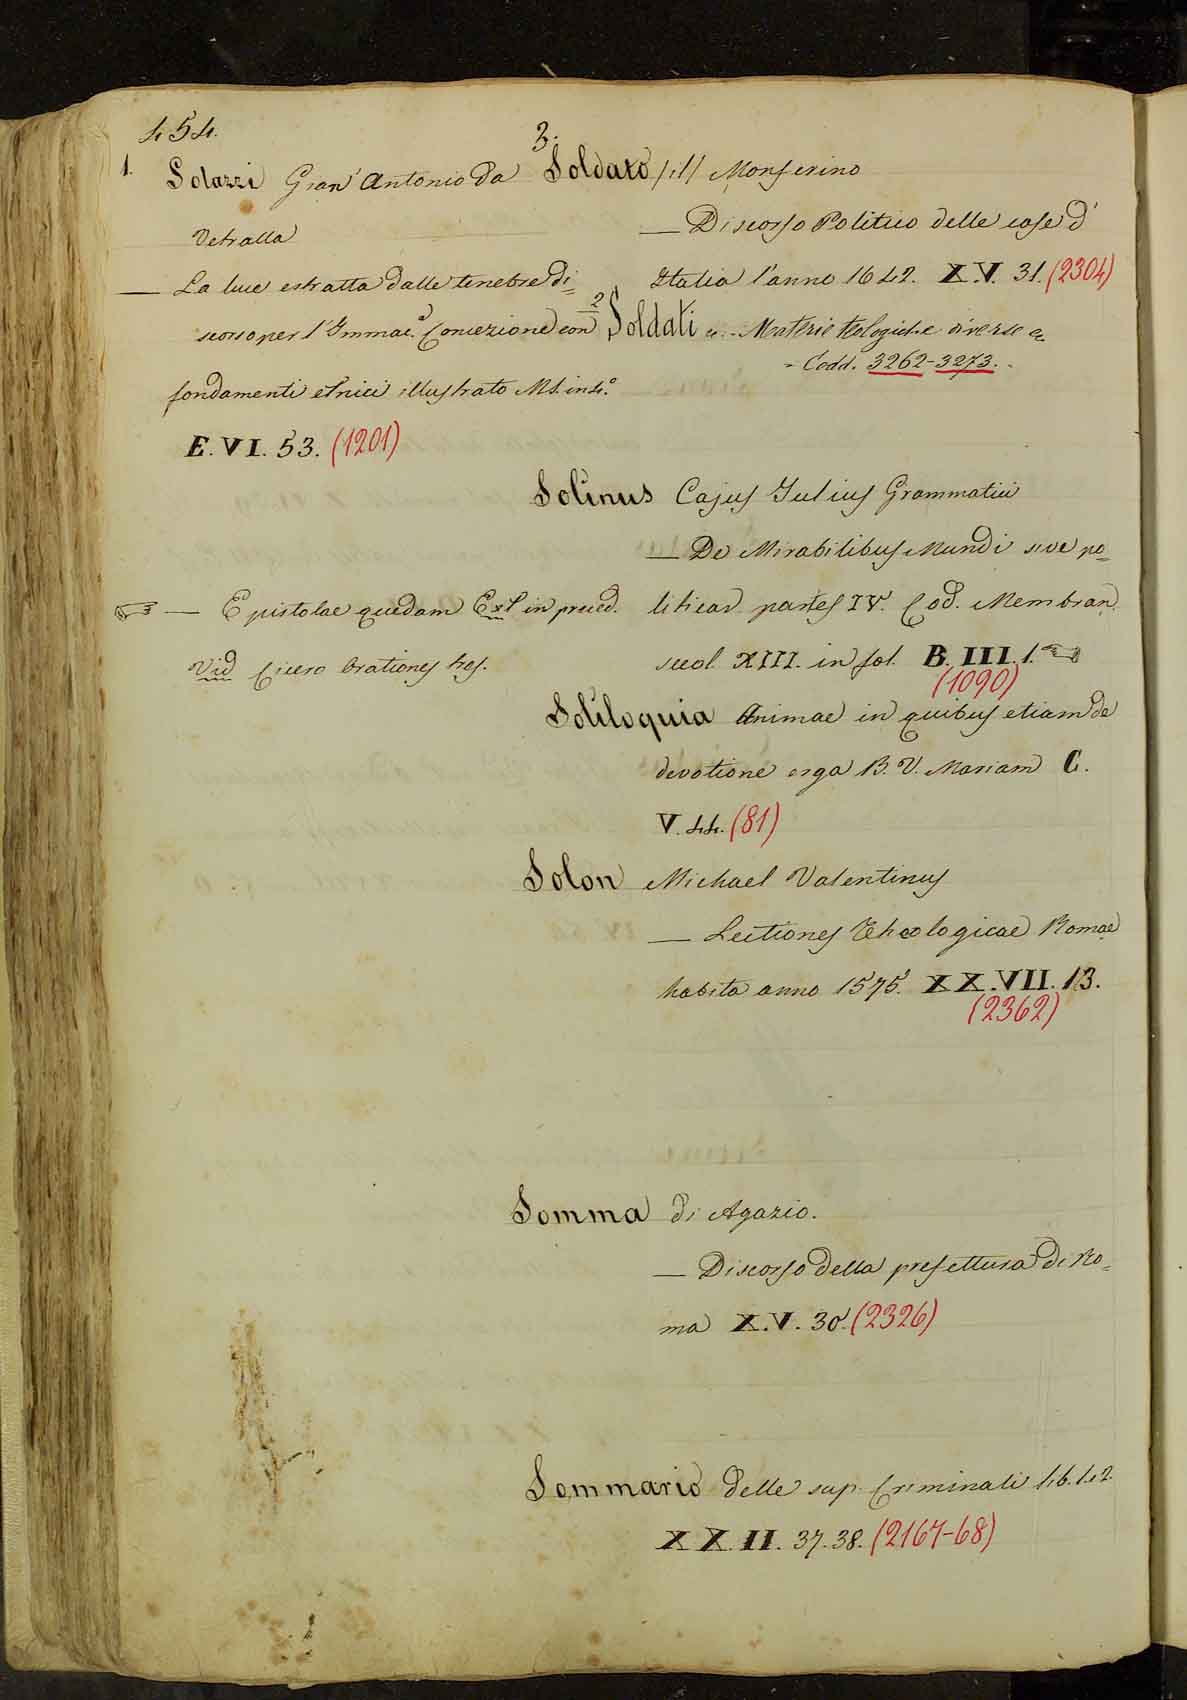 454.
1. Solazzi Gian Antonio da
Vetralla
— La luce estratta dalle tenebre di=
scorso per l'Immac.ª Concezione con
fondamenti etnici illustrato MS. in 4.º
E. VI. 53. (1201)
☞ — Epistolae quedam Ext in preced.
Vid Cicero Orationes tres.
3.
Soldato /il/ Monferino
— Discorso Politico delle cose d'
Italia l'anno 1642. X.V. 31. (2304)
2
Soldati - Materie teologiche diverse
- Codd. 3262-3273.
Solinus Cajus Julius Grammatici
— De Mirabilibus Mundi sive po=
liticar partes IV. Cod. Membran.
secol. XIII. in fol. B. III. 1. ☜
(1090)
Soliloquia Animae in quibus etiam de
devotione erga B. V. Mariam C.
V. 44. (81)
Solon Michael Valentinus
— Lectiones Theologicae Romae
habita anno 1575. XX.VII. 13.
(2362)
Somma di Agazio.
— Discorso della prefettura di Ro=
ma X.V. 30. (2326)
Sommario delle sup. Criminali
XX.II. 37.38. (2167-68)